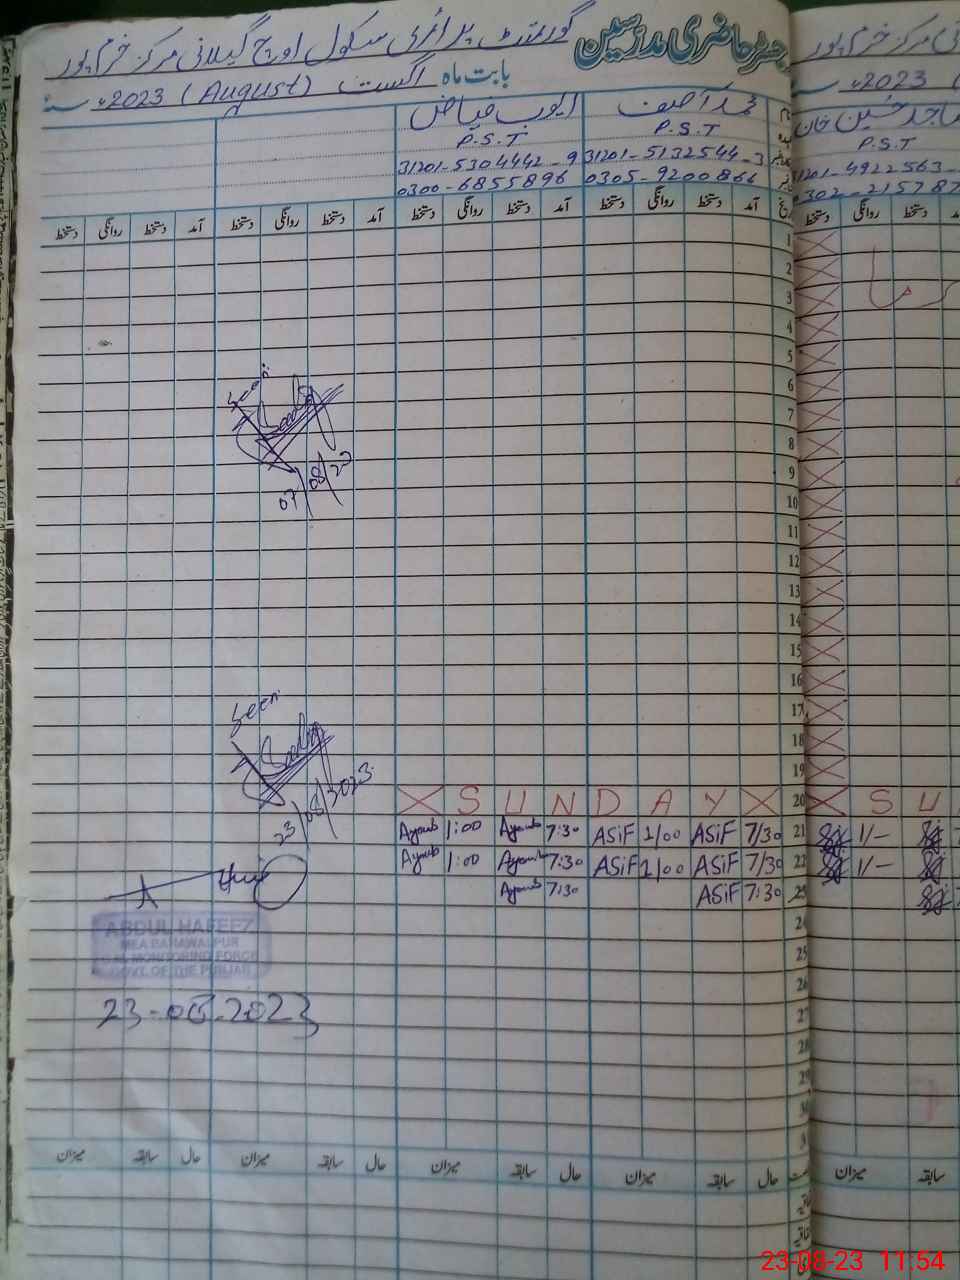 رجسٹر حاضری مدرسین گورنمنٹ پرائمری سکول اوچ گیلانی مرکز خرم پور
بابت ماہ اگست (August) 2023ء سنہ
محمد آصف ایوب فیاض
P.S.T P.S.T
31201-5132544-3 31201-5304442-9
0305-9200866 0300-6855896
ساجد حسین خان
P.S.T
31201-4922563-
0302-215787
تاریخ آمد دستخط روانگی دستخط آمد دستخط روانگی دستخط آمد دستخط روانگی دستخط آمد دستخط روانگی دستخط
دستخط روانگی دستخط
1
2
3
4
5
6
7
8
9
10
11
12
13
14
15
16
17
18
19
X S U N D A Y X 20 X S U
Ayoub 1:00 Ayoub 7:30 ASiF 1/00 ASiF 7/30 21 1/-
Ayoub 1:00 Ayoub 7:30 ASiF 1/00 ASiF 7/30 22 1/-
Ayoub 7:30 ASiF 7:30 23
24
25
26
27
28
29
30
Seen
07/08/23
Seen
23/08/2023
ABDUL HAFEEZ
MEA BAHAWALPUR
MONITORING FORCE
GOVT. OF THE PUNJAB
23-08-2023
حال سابقہ میزان حال سابقہ میزان حال سابقہ میزان حال سابقہ میزان
سابقہ میزان
23-08-23 11:54